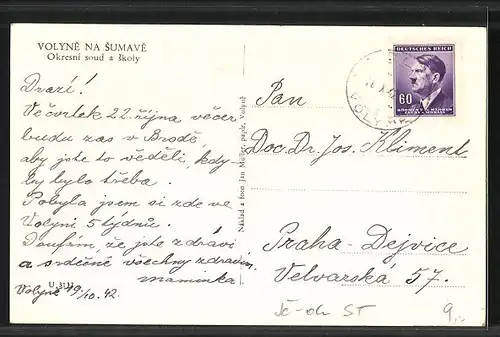 VOLYNĚ NA ŠUMAVĚ
Okresní soud a školy
Drazí!
Ve čtvrtek 22. října večer
budu zas v Brodě,
aby jste to věděli, kdy-
by bylo třeba.
Pobyla jsem si zde ve
Volyni 5 týdnů.
Doufám, že jste zdrávi
a srdečně všechny zdravím.
maminka
Volyně 19/10. 42.
Náklad a foto Jan Müller, papír, Volyně
DEUTSCHES REICH
60
BÖHMEN U. MÄHREN
ČECHY A MORAVA
Pan
Doc. Dr. Jos. Kliment
Praha - Dejvice
Velvarská 57.
Jč-ok ST
9,-